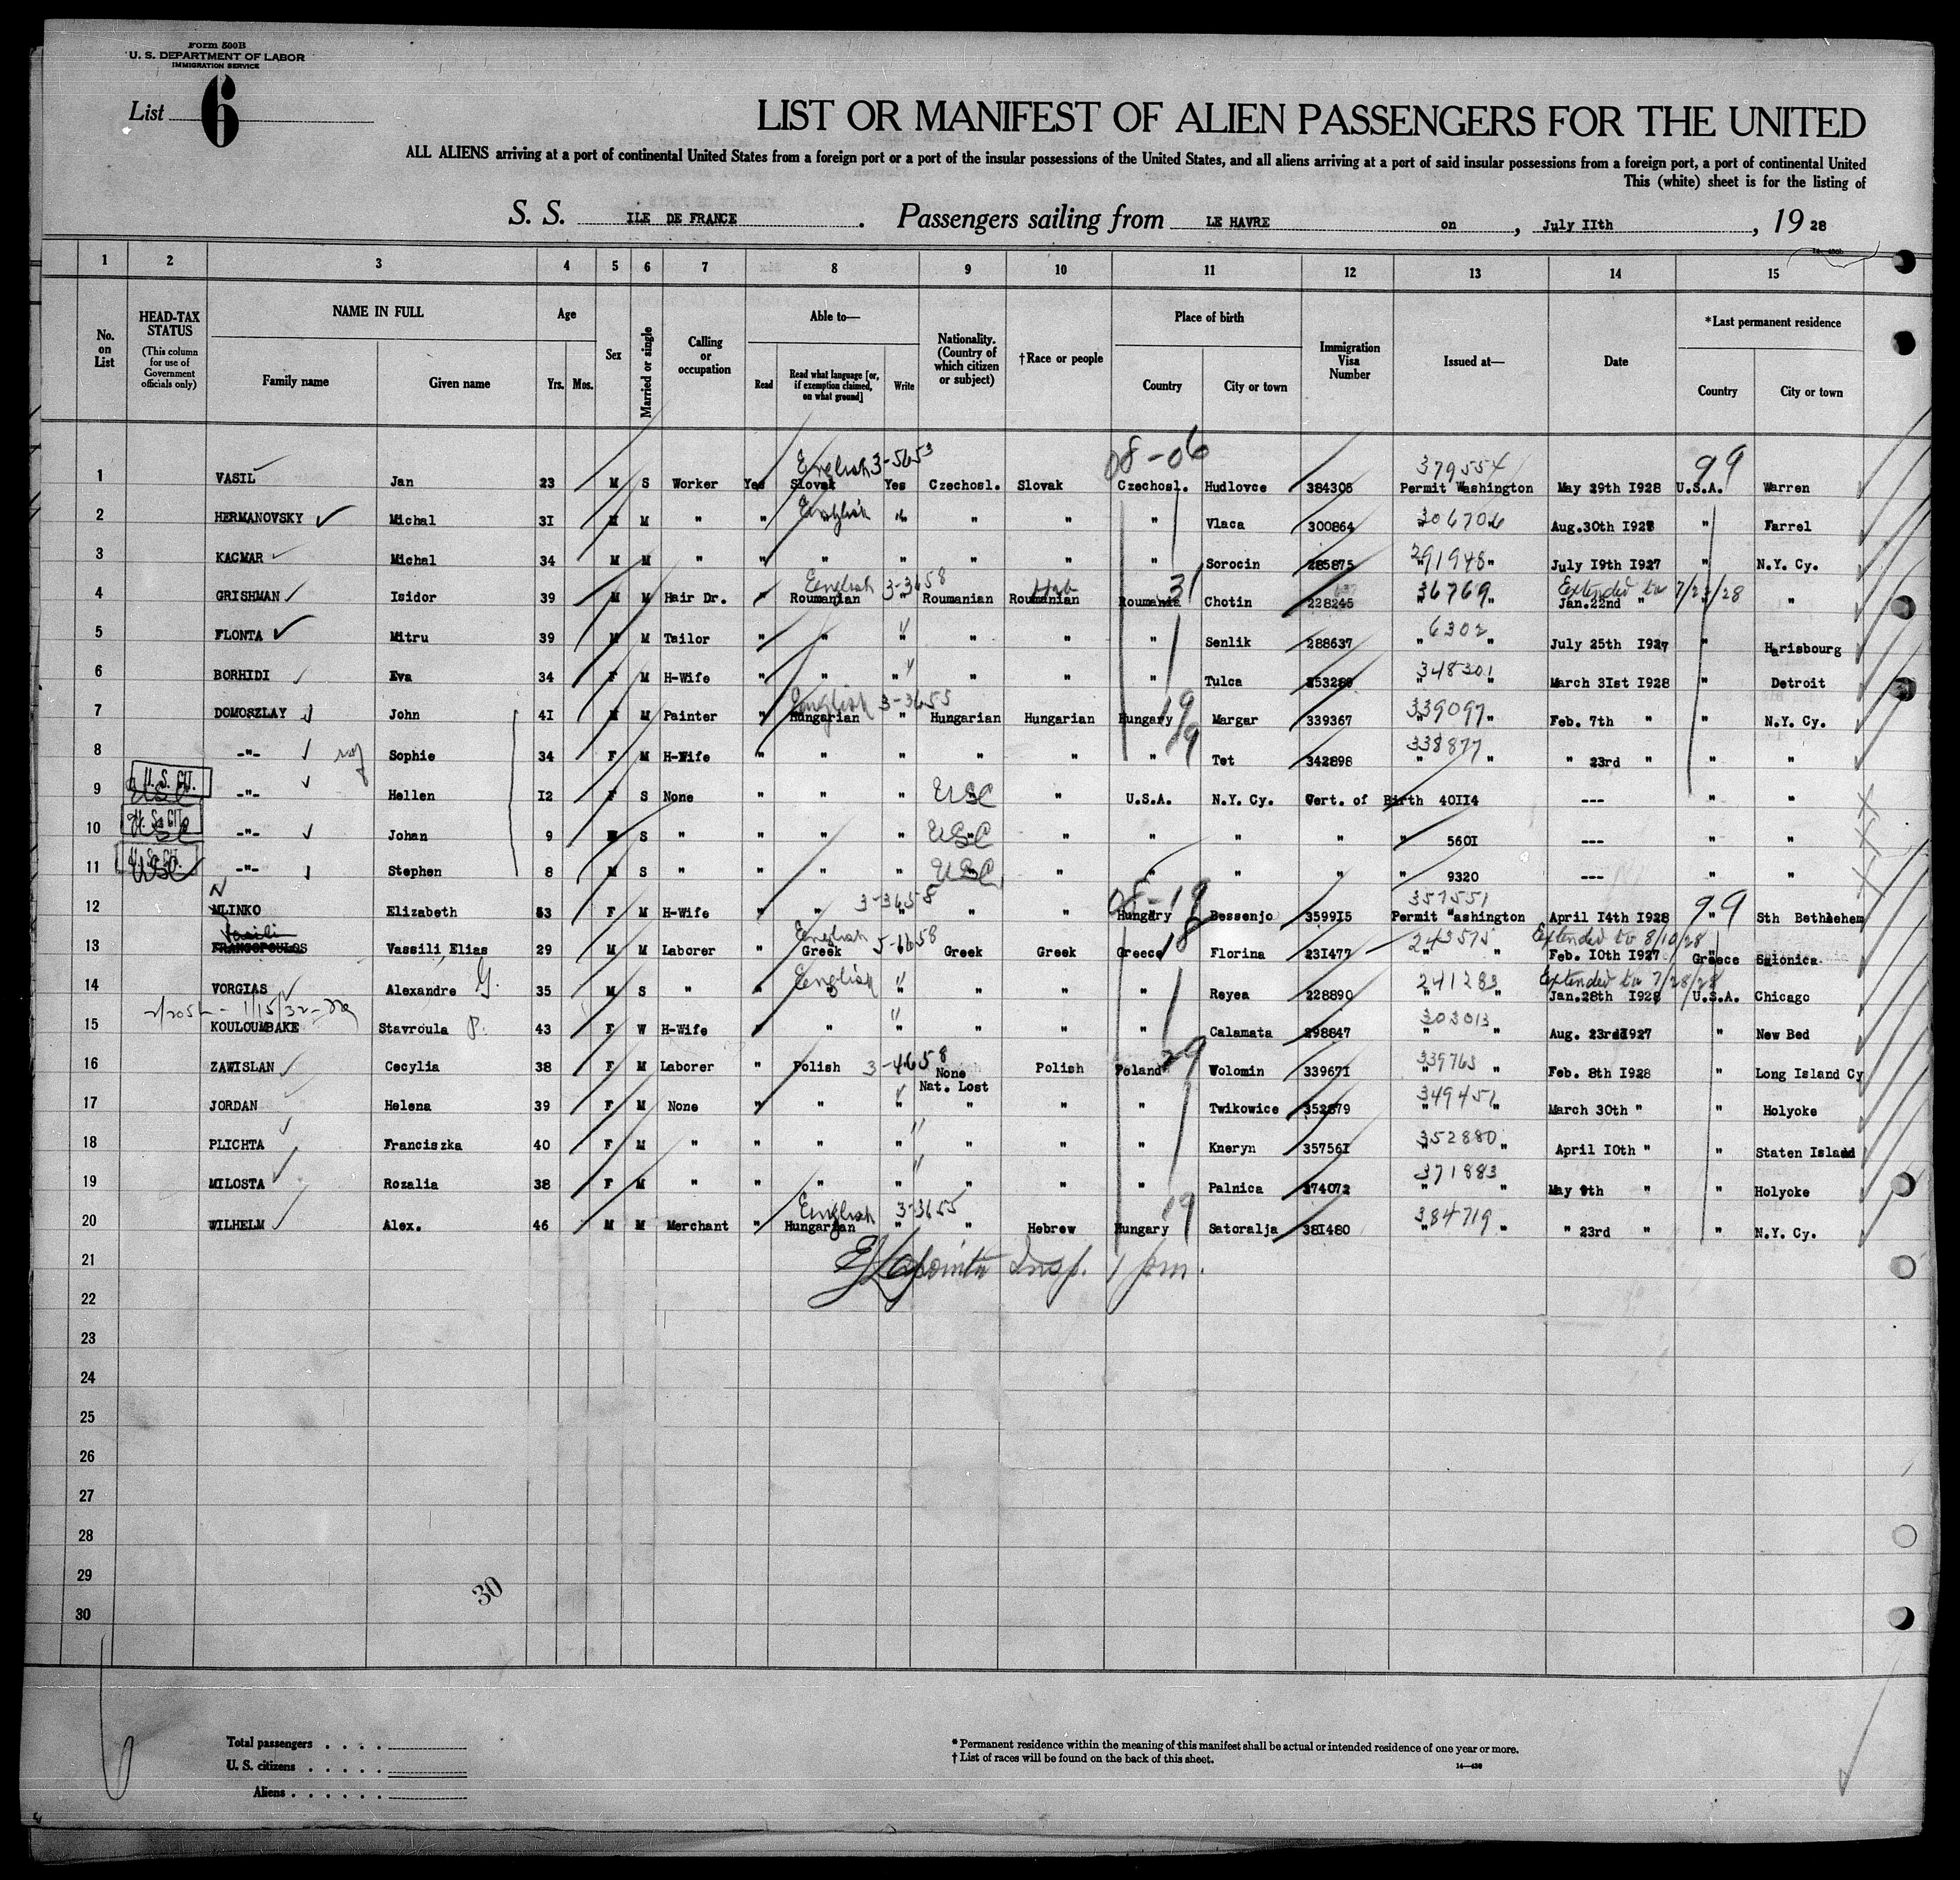 Form 500B
U. S. DEPARTMENT OF LABOR
IMMIGRATION SERVICE
List 6
LIST OR MANIFEST OF ALIEN PASSENGERS FOR THE UNITED
ALL ALIENS arriving at a port of continental United States from a foreign port or a port of the insular possessions of the United States, and all aliens arriving at a port of said insular possessions from a foreign port, a port of continental United
This (white) sheet is for the listing of
S. S. ILE DE FRANCE . Passengers sailing from LE HAVRE on , July IIth , 19 28
1 2 3 4 5 6 7 8 9 10 11 12 13 14 15
No. on List
HEAD-TAX STATUS
(This column for use of Government officials only)
NAME IN FULL
Family name Given name
Age
Yrs. Mos.
Sex
Married or single
Calling or occupation
Able to—
Read Read what language [or, if exemption claimed, on what ground] Write
Nationality. (Country of which citizen or subject)
†Race or people
Place of birth
Country City or town
Immigration Visa Number
Issued at—
Date
*Last permanent residence
Country City or town
English 3-5653 08-06 379554 99
1 VASIL Jan 23 M S Worker Yes Slovak Yes Czechosl. Slovak Czechosl. Hudlovce 384305 Permit Washington May 29th I928 U.S.A. Warren
English 306706
2 HERMANOVSKY Michal 3I M M " " " " " " Vlaca 300864 " " Aug.30th I927 " Farrel
291948
3 KACMAR Michal 34 M M " " " " " " " Sorocin 285875 " " July I9th I927 " N.Y. Cy.
English 3-3658 Heb 31 36769 Extended to 7/22/28
4 GRISHMAN Isidor 39 M M Hair Dr. " Roumanian Roumanian Roumanian Roumania Chotin 228245 " " Jan.22nd " " "
6302
5 FLONTA Mitru 39 M M Tailor " " " " " " Senlik 288637 " " July 25th I927 " Harisbourg
348301
6 BORHIDI Eva 34 F M H-Wife " " " " " " Tulca " " March 3Ist I928 " Detroit
English 3-3655 19 339097
7 DOMOSZLAY John 4I M M Painter " Hungarian " Hungarian Hungarian Hungary Margar 339367 " " Feb. 7th " " N.Y. Cy.
19 338877
8 -"- Sophie 34 F M H-Wife " " " " " " Tet 342898 " " " 23rd " " "
U. S. CIT. USC
9 -"- Hellen I2 F S None " " " USC " U.S.A. N.Y. Cy. Cert. of Birth 40II4 --- " "
U. S. CIT. USC
10 -"- Johan 9 M S " " " " USC " " " " " 560I --- " "
U. S. CIT. USC
11 -"- Stephen 8 M S " " " " USC " " " " " 9320 --- " "
N 3-3658 08-19 357551 99
12 MLINKO Elizabeth 53 F M H-Wife " " " " " Hungary Bessenjo 3599I5 Permit Washington April I4th I928 " Sth Bethlehem
Vasili English 5-6658 18 243575 Extended to 8/10/28
13 FRANGOPOULOS Vassili Elias 29 M M Laborer " Greek Greek Greek Greece Florina 23I477 " " Feb. I0th I927 Greece Salonica
English 241283 Extended to 7/28/28
14 VORGIAS Alexandre G. 35 M S " " " " " " " Reyea 228890 " " Jan.28th I928 U.S.A. Chicago
303013
15 KOULOUMBAKE Stavroula P. 43 F W H-Wife " " " " " " Calamata 298847 " " Aug. 23rd I927 " New Bed
3-4658 29 339763
16 ZAWISLAN Cecylia 38 F M Laborer " Polish None Nat. Lost Polish Poland Wolomin 33967I " " Feb. 8th I928 " Long Island Cy
349451
17 JORDAN Helena 39 F M None " " " " " " Twikowice 352879 " " March 30th " " Holyoke
352880
18 PLICHTA Franciszka 40 F M " " " " " " " Kneryn 35756I " " April I0th " " Staten Island
371883
19 MILOSTA Rozalia 38 F M " " " " " " " Palnica 374072 " " May 9th " " Holyoke
English 3-3655 19 384719
20 WILHELM Alex. 46 M M Merchant " Hungarian " " Hebrew Hungary Satoralja 38I480 " " " 23rd " " N.Y. Cy.
21 Insp. 1 pm.
22
23
24
25
26
27
28
29
30
30
Total passengers . . . .
U. S. citizens . . . . .
Aliens . . . . . .
* Permanent residence within the meaning of this manifest shall be actual or intended residence of one year or more.
† List of races will be found on the back of this sheet.
14—430